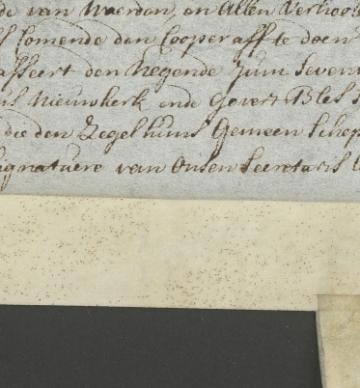 de van Waerden, an Allen Verkoo
Comende dan Cooper aff te doen
asseert den Negende Juni Seven
Nieuwkerk ende Govert Bles
die den Zegel huns Gemeen Schep
ignatuere van Onsen Secretaris